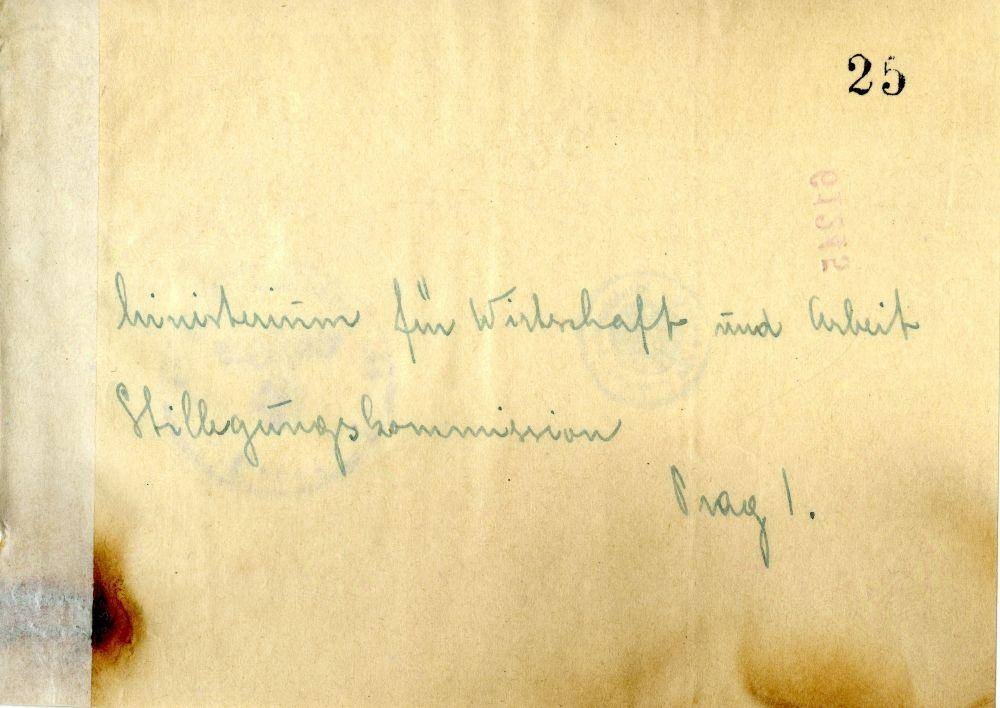 25
61242
Ministerium für Wirtschaft und Arbeit
Stillegungskommission
Prag I.